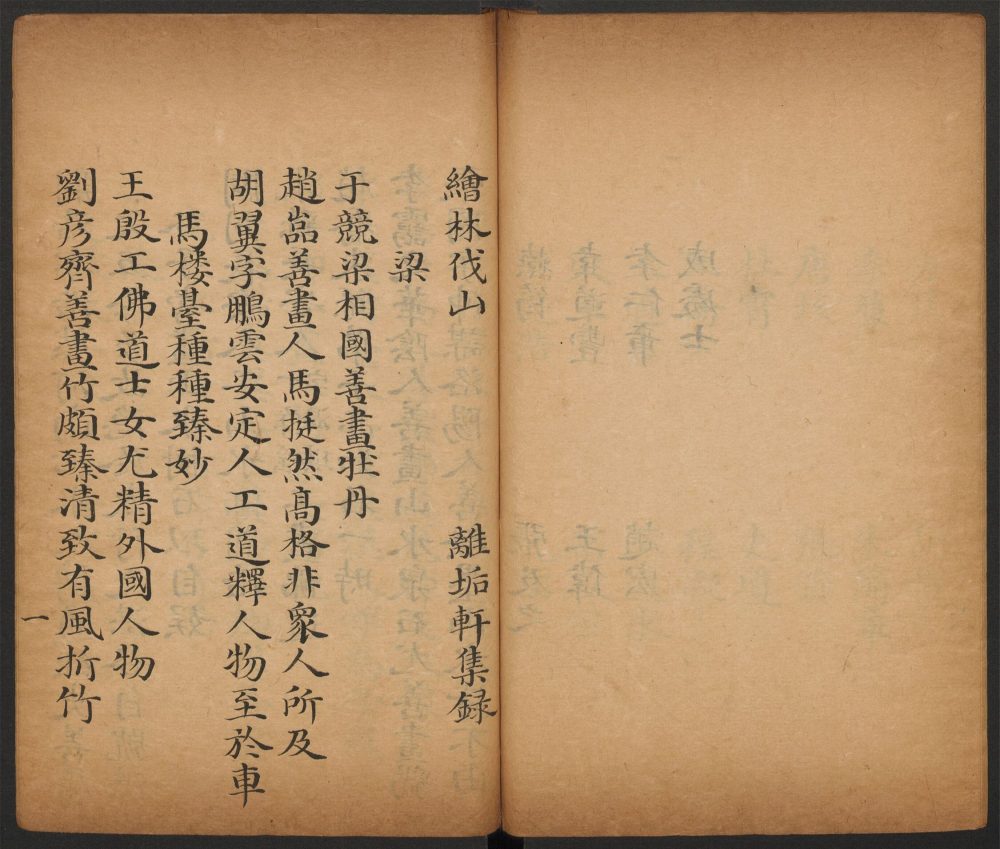 繪林伐山 離垢軒集録
梁
于競梁相國善畫牡丹
趙嵓善畫人馬挺然髙格非衆人所及
胡翼字鵬雲安定人工道釋人物至於車
馬楼臺種種臻妙
王殷工佛道士女尤精外國人物
劉彦齊善畫竹頗臻清致有風折竹
一